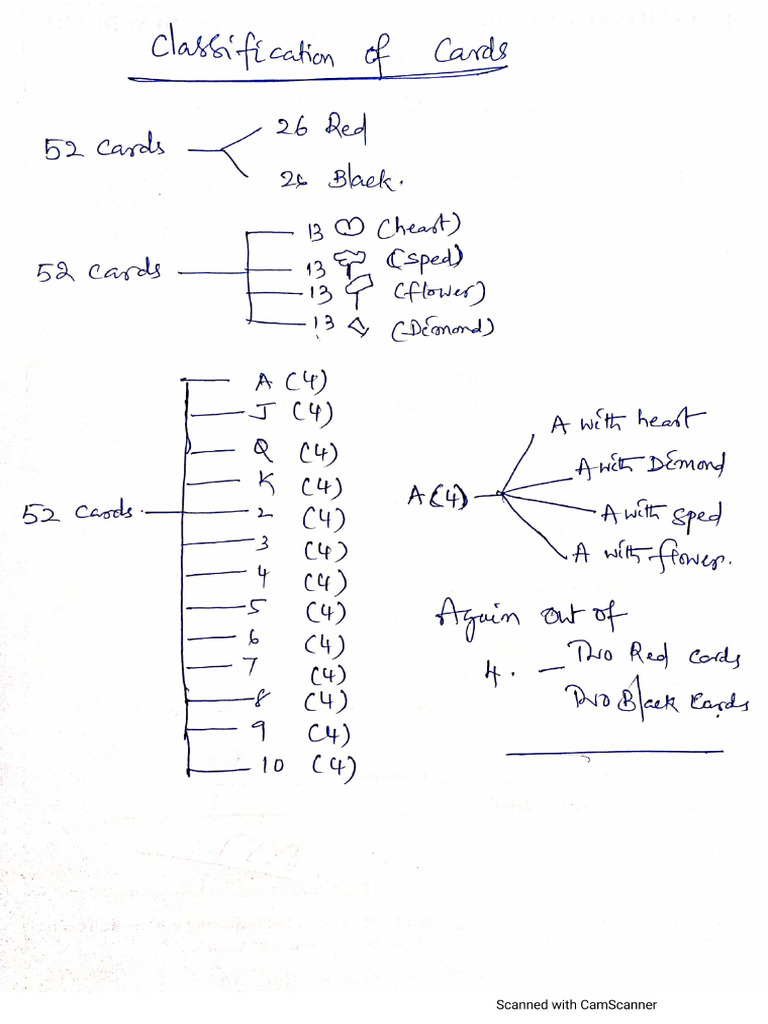 Classification of Cards
52 Cards
26 Red
26 Black.
52 Cards
13 (heart)
13 (sped)
13 (flower)
13 (Démond)
52 Cards
A (4)
J (4)
Q (4)
K (4)
2 (4)
3 (4)
4 (4)
5 (4)
6 (4)
7 (4)
8 (4)
9 (4)
10 (4)
A(4)
A with heart
A with Démond
A with sped
A with flower.
Again out of
4. — Two Red Cards
Two Black Cards
Scanned with CamScanner